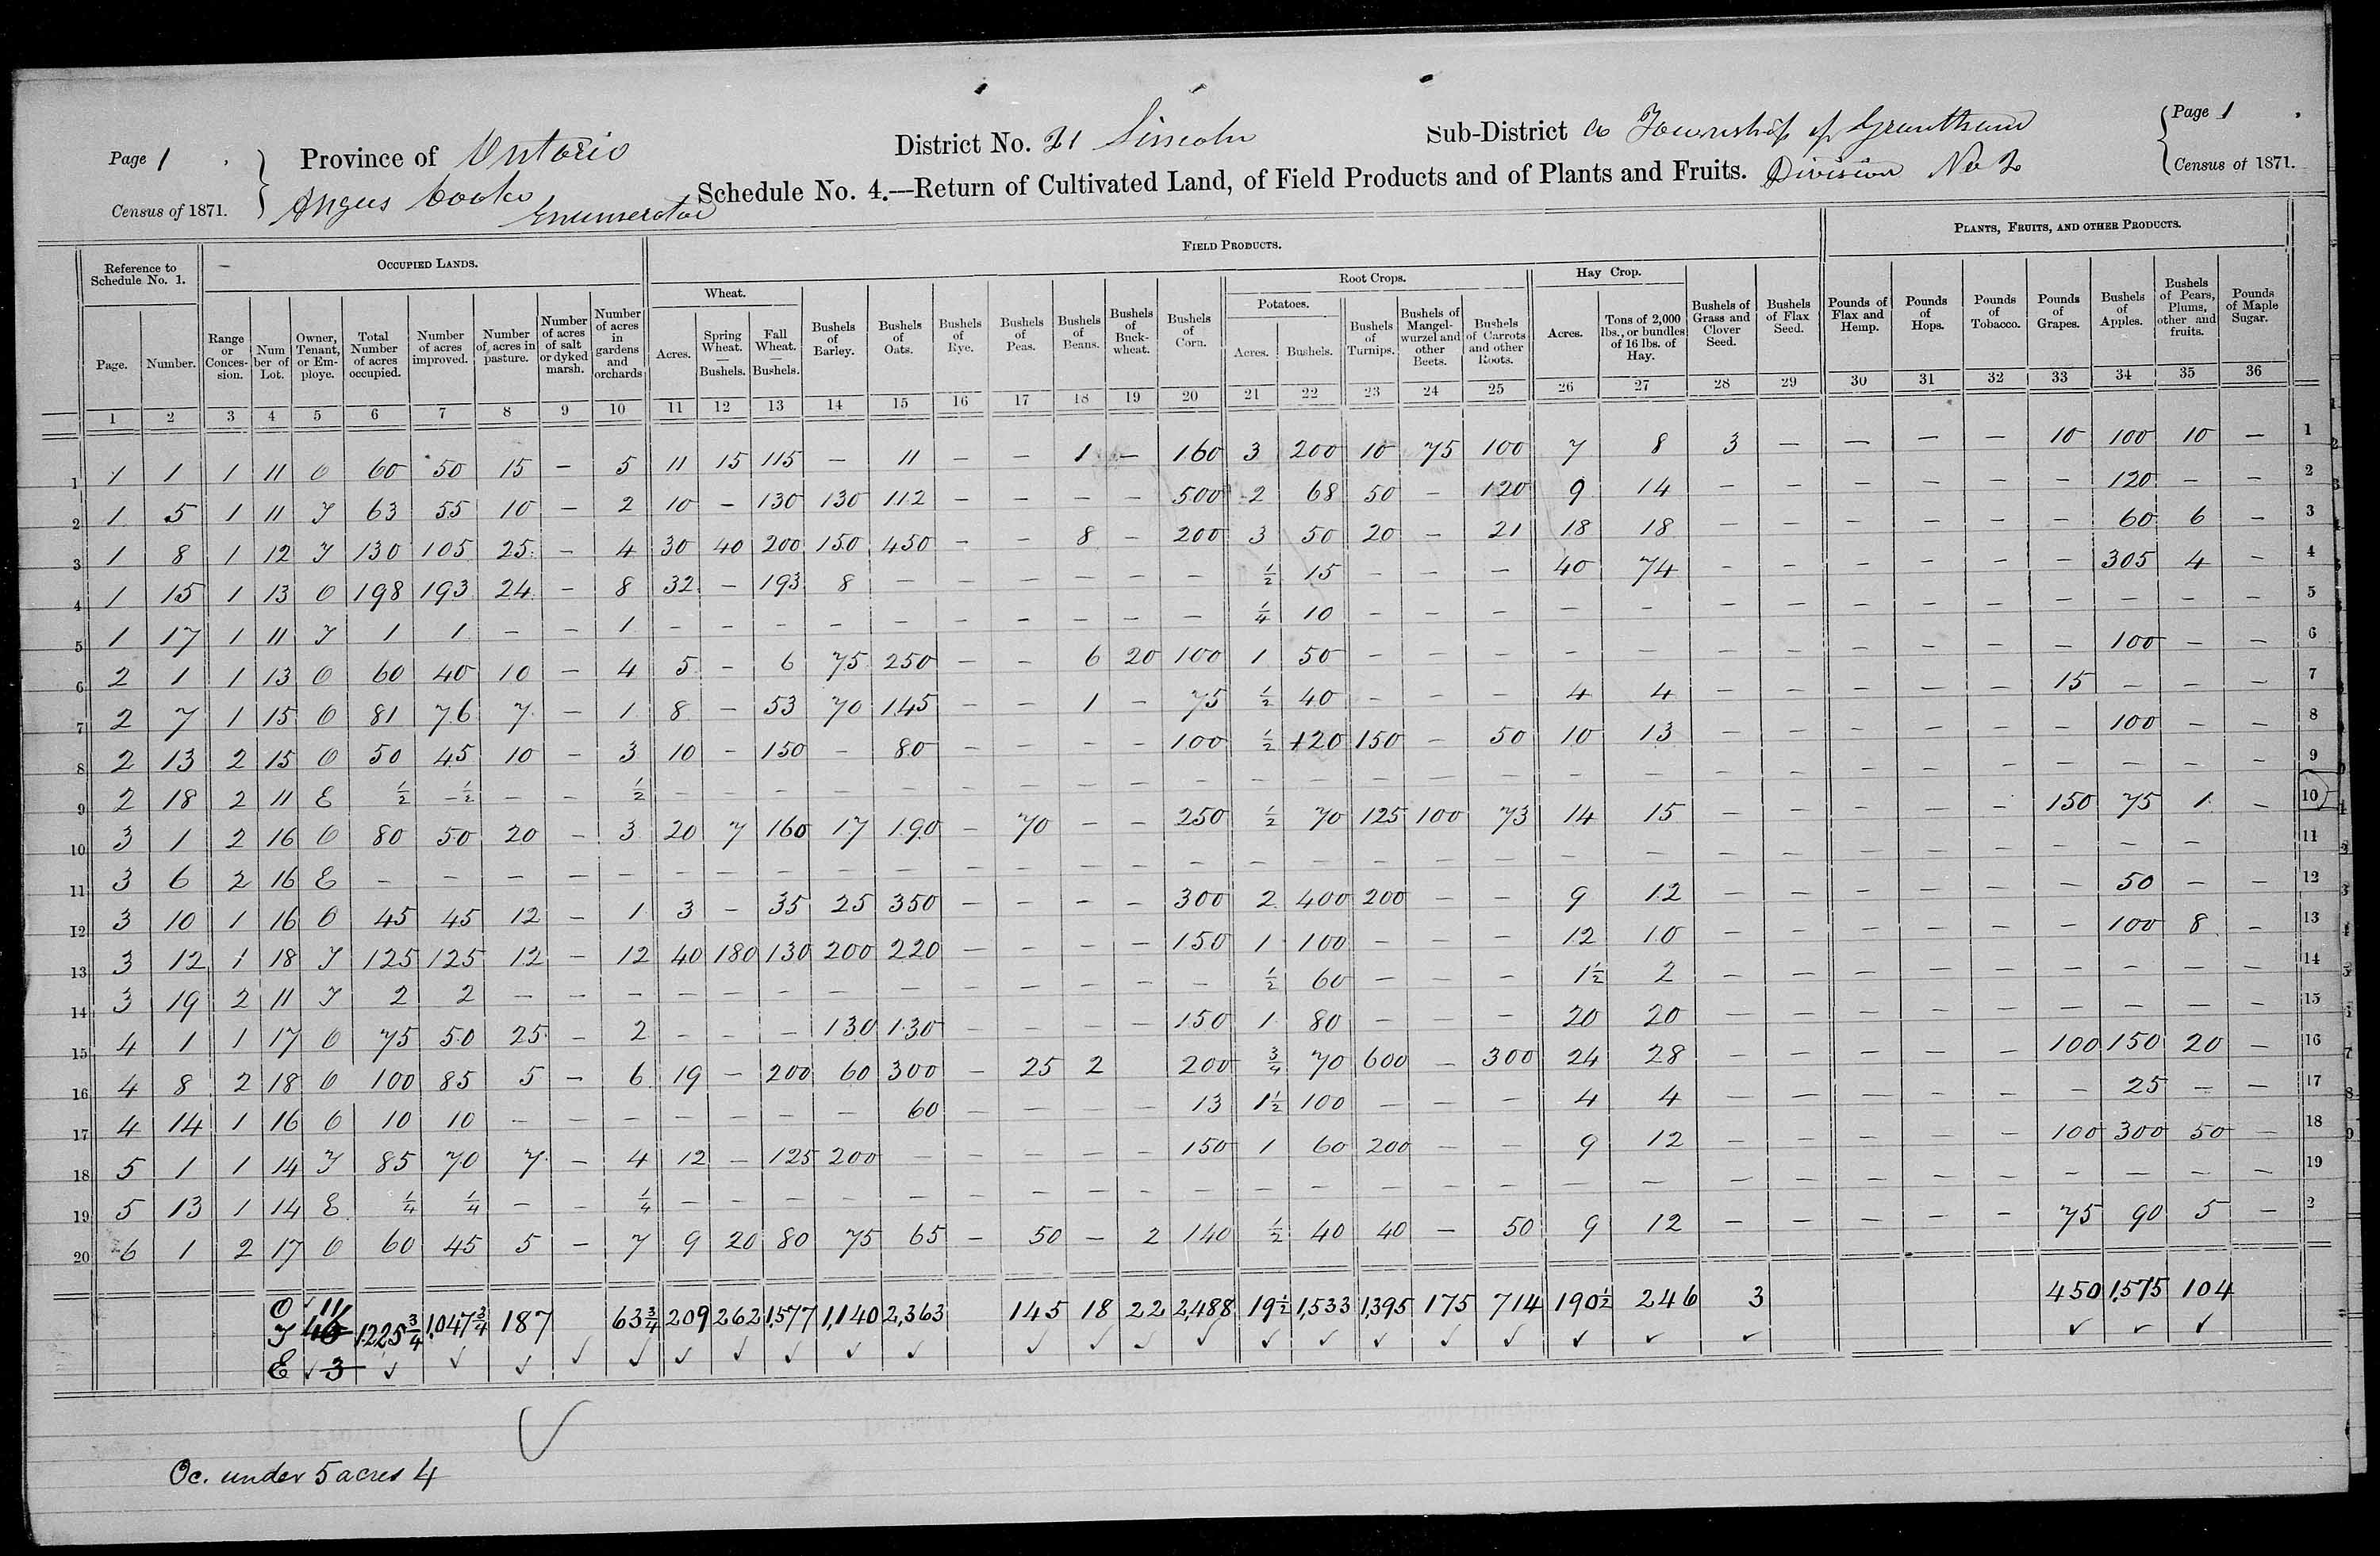 Page 1
Census of 1871.
Province of Ontario
Angus Cooke
Enumerator
District No. 21 Lincoln
Sub-District a Township of Grantham
Schedule No. 4.—Return of Cultivated Land, of Field Products and of Plants and Fruits. Division No 2
Page 1
Census of 1871.
Reference to Schedule No. 1. OCCUPIED LANDS. FIELD PRODUCTS. PLANTS, FRUITS, AND OTHER PRODUCTS.
Wheat. Root Crops. Potatoes. Hay Crop.
Page.
Number.
Range or Concession.
Number of Lot.
Owner, Tenant, or Employe.
Total Number of acres occupied.
Number of acres improved.
Number of acres in pasture.
Number of acres of salt or dyked marsh.
Number of acres in gardens and orchards
Acres.
Spring Wheat. — Bushels.
Fall Wheat. — Bushels.
Bushels of Barley.
Bushels of Oats.
Bushels of Rye.
Bushels of Peas.
Bushels of Beans.
Bushels of Buckwheat.
Bushels of Corn.
Acres.
Bushels.
Bushels of Turnips.
Bushels of Mangel-wurzel and other Beets.
Bushels of Carrots and other Roots.
Acres.
Tons of 2,000 lbs., or bundles of 16 lbs. of Hay.
Bushels of Grass and Clover Seed.
Bushels of Flax Seed.
Pounds of Flax and Hemp.
Pounds of Hops.
Pounds of Tobacco.
Pounds of Grapes.
Bushels of Apples.
Bushels of Pears, Plums, other and fruits.
Pounds of Maple Sugar.
1 2 3 4 5 6 7 8 9 10 11 12 13 14 15 16 17 18 19 20 21 22 23 24 25 26 27 28 29 30 31 32 33 34 35 36
1 1 1 1 11 O 60 50 15 — 5 11 15 115 — 11 — — 1 — 160 3 200 10 75 100 7 8 3 — — — — 10 100 10 — 1
2 1 5 1 11 T 63 55 10 — 2 10 — 130 130 112 — — — — 500 2 68 50 — 120 9 14 — — — — — — 120 — — 2
3 1 8 1 12 T 130 105 25 — 4 30 40 200 150 450 — — 8 — 200 3 50 20 — 21 18 18 — — — — — — 60 6 — 3
4 1 15 1 13 O 198 193 24 — 8 32 — 193 8 — — — — — — ½ 15 — — — 40 74 — — — — — — 305 4 — 4
5 1 17 1 11 T 1 1 — — 1 — — — — — — — — — — ¼ 10 — — — — — — — — — — — — — — 5
6 2 1 1 13 O 60 40 10 — 4 5 — 6 75 250 — — 6 20 100 1 50 — — — — — — — — — — — 100 — — 6
7 2 7 1 15 O 81 76 7 — 1 8 — 53 70 145 — — 1 — 75 ½ 40 — — — 4 4 — — — — — 15 — — — 7
8 2 13 2 15 O 50 45 10 — 3 10 — 150 — 80 — — — — 100 ½ 120 150 — 50 10 13 — — — — — — 100 — — 8
9 2 18 2 11 E ½ ½ — — ½ — — — — — — — — — — — — — — — — — — — — — — — — — — 9
10 3 1 2 16 O 80 50 20 — 3 20 7 160 17 190 — 70 — — 250 ½ 70 125 100 73 14 15 — — — — — 150 75 1 — 10
11 3 6 2 16 E — — — — — — — — — — — — — — — — — — — — — — — — — — — — — — — 11
12 3 10 1 16 O 45 45 12 — 1 3 — 35 25 350 — — — — 300 2 400 200 — — 9 12 — — — — — — 50 — — 12
13 3 12 1 18 T 125 125 12 — 12 40 180 130 200 220 — — — — 150 1 100 — — — 12 10 — — — — — — 100 8 — 13
14 3 19 2 11 T 2 2 — — — — — — — — — — — — — ½ 60 — — — 1½ 2 — — — — — — — — — 14
15 4 1 1 17 O 75 50 25 — 2 — — — 130 130 — — — — 150 1 80 — — — 20 20 — — — — — — — — — 15
16 4 8 2 18 O 100 85 5 — 6 19 — 200 60 300 — 25 2 200 ¾ 70 600 — 300 24 28 — — — — — 100 150 20 — 16
17 4 14 1 16 O 10 10 — — — — — — — 60 — — — — 13 1½ 100 — — — 4 4 — — — — — — 25 — — 17
18 5 1 1 14 T 85 70 7 — 4 12 — 125 200 — — — — — 150 1 60 200 — — 9 12 — — — — — 100 300 50 — 18
19 5 13 1 14 E ¼ ¼ — — ¼ — — — — — — — — — — — — — — — — — — — — — — — — — — 19
20 6 1 2 17 O 60 45 5 — 7 9 20 80 75 65 — 50 — 2 140 ½ 40 40 — 50 9 12 — — — — — 75 90 5 — 2
O 11
T 6 1225¾ 1,047¾ 187 63¾ 209 262 1,577 1,140 2,363 145 18 22 2,488 19½ 1,533 1,395 175 714 190½ 246 3 450 1,575 104
E 3
Oc. under 5 acres 4